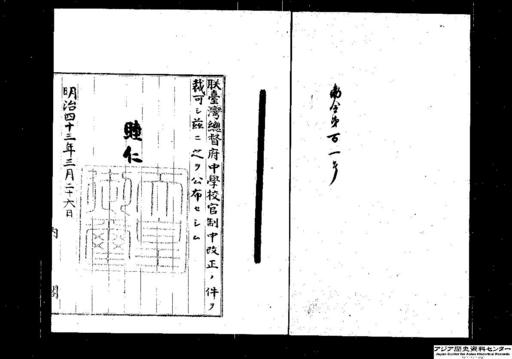 勅令第百一号
朕臺灣總督府中學校官制中改正ノ件ヲ
裁可シ茲ニ之ヲ公布セシム
睦仁
明治四十三年三月二十六日
内閣
アジア歴史資料センター
Japan Center for Asian Historical Records